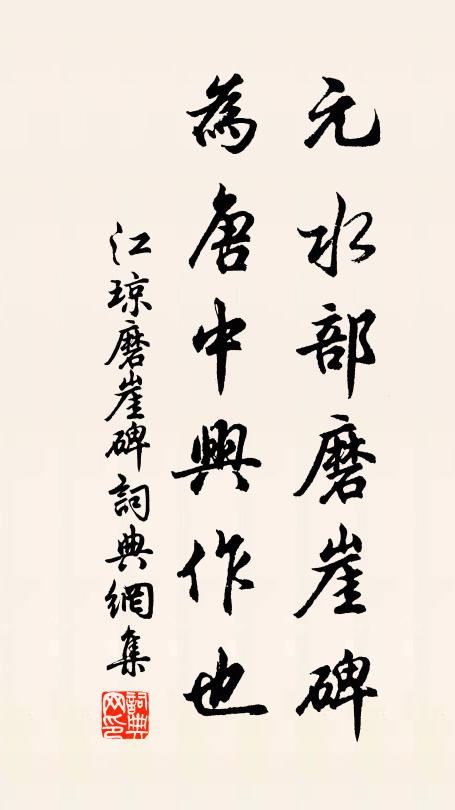 元水部磨崖碑
為唐中興作也
江琼磨崖碑詞典網集
詞典
网印